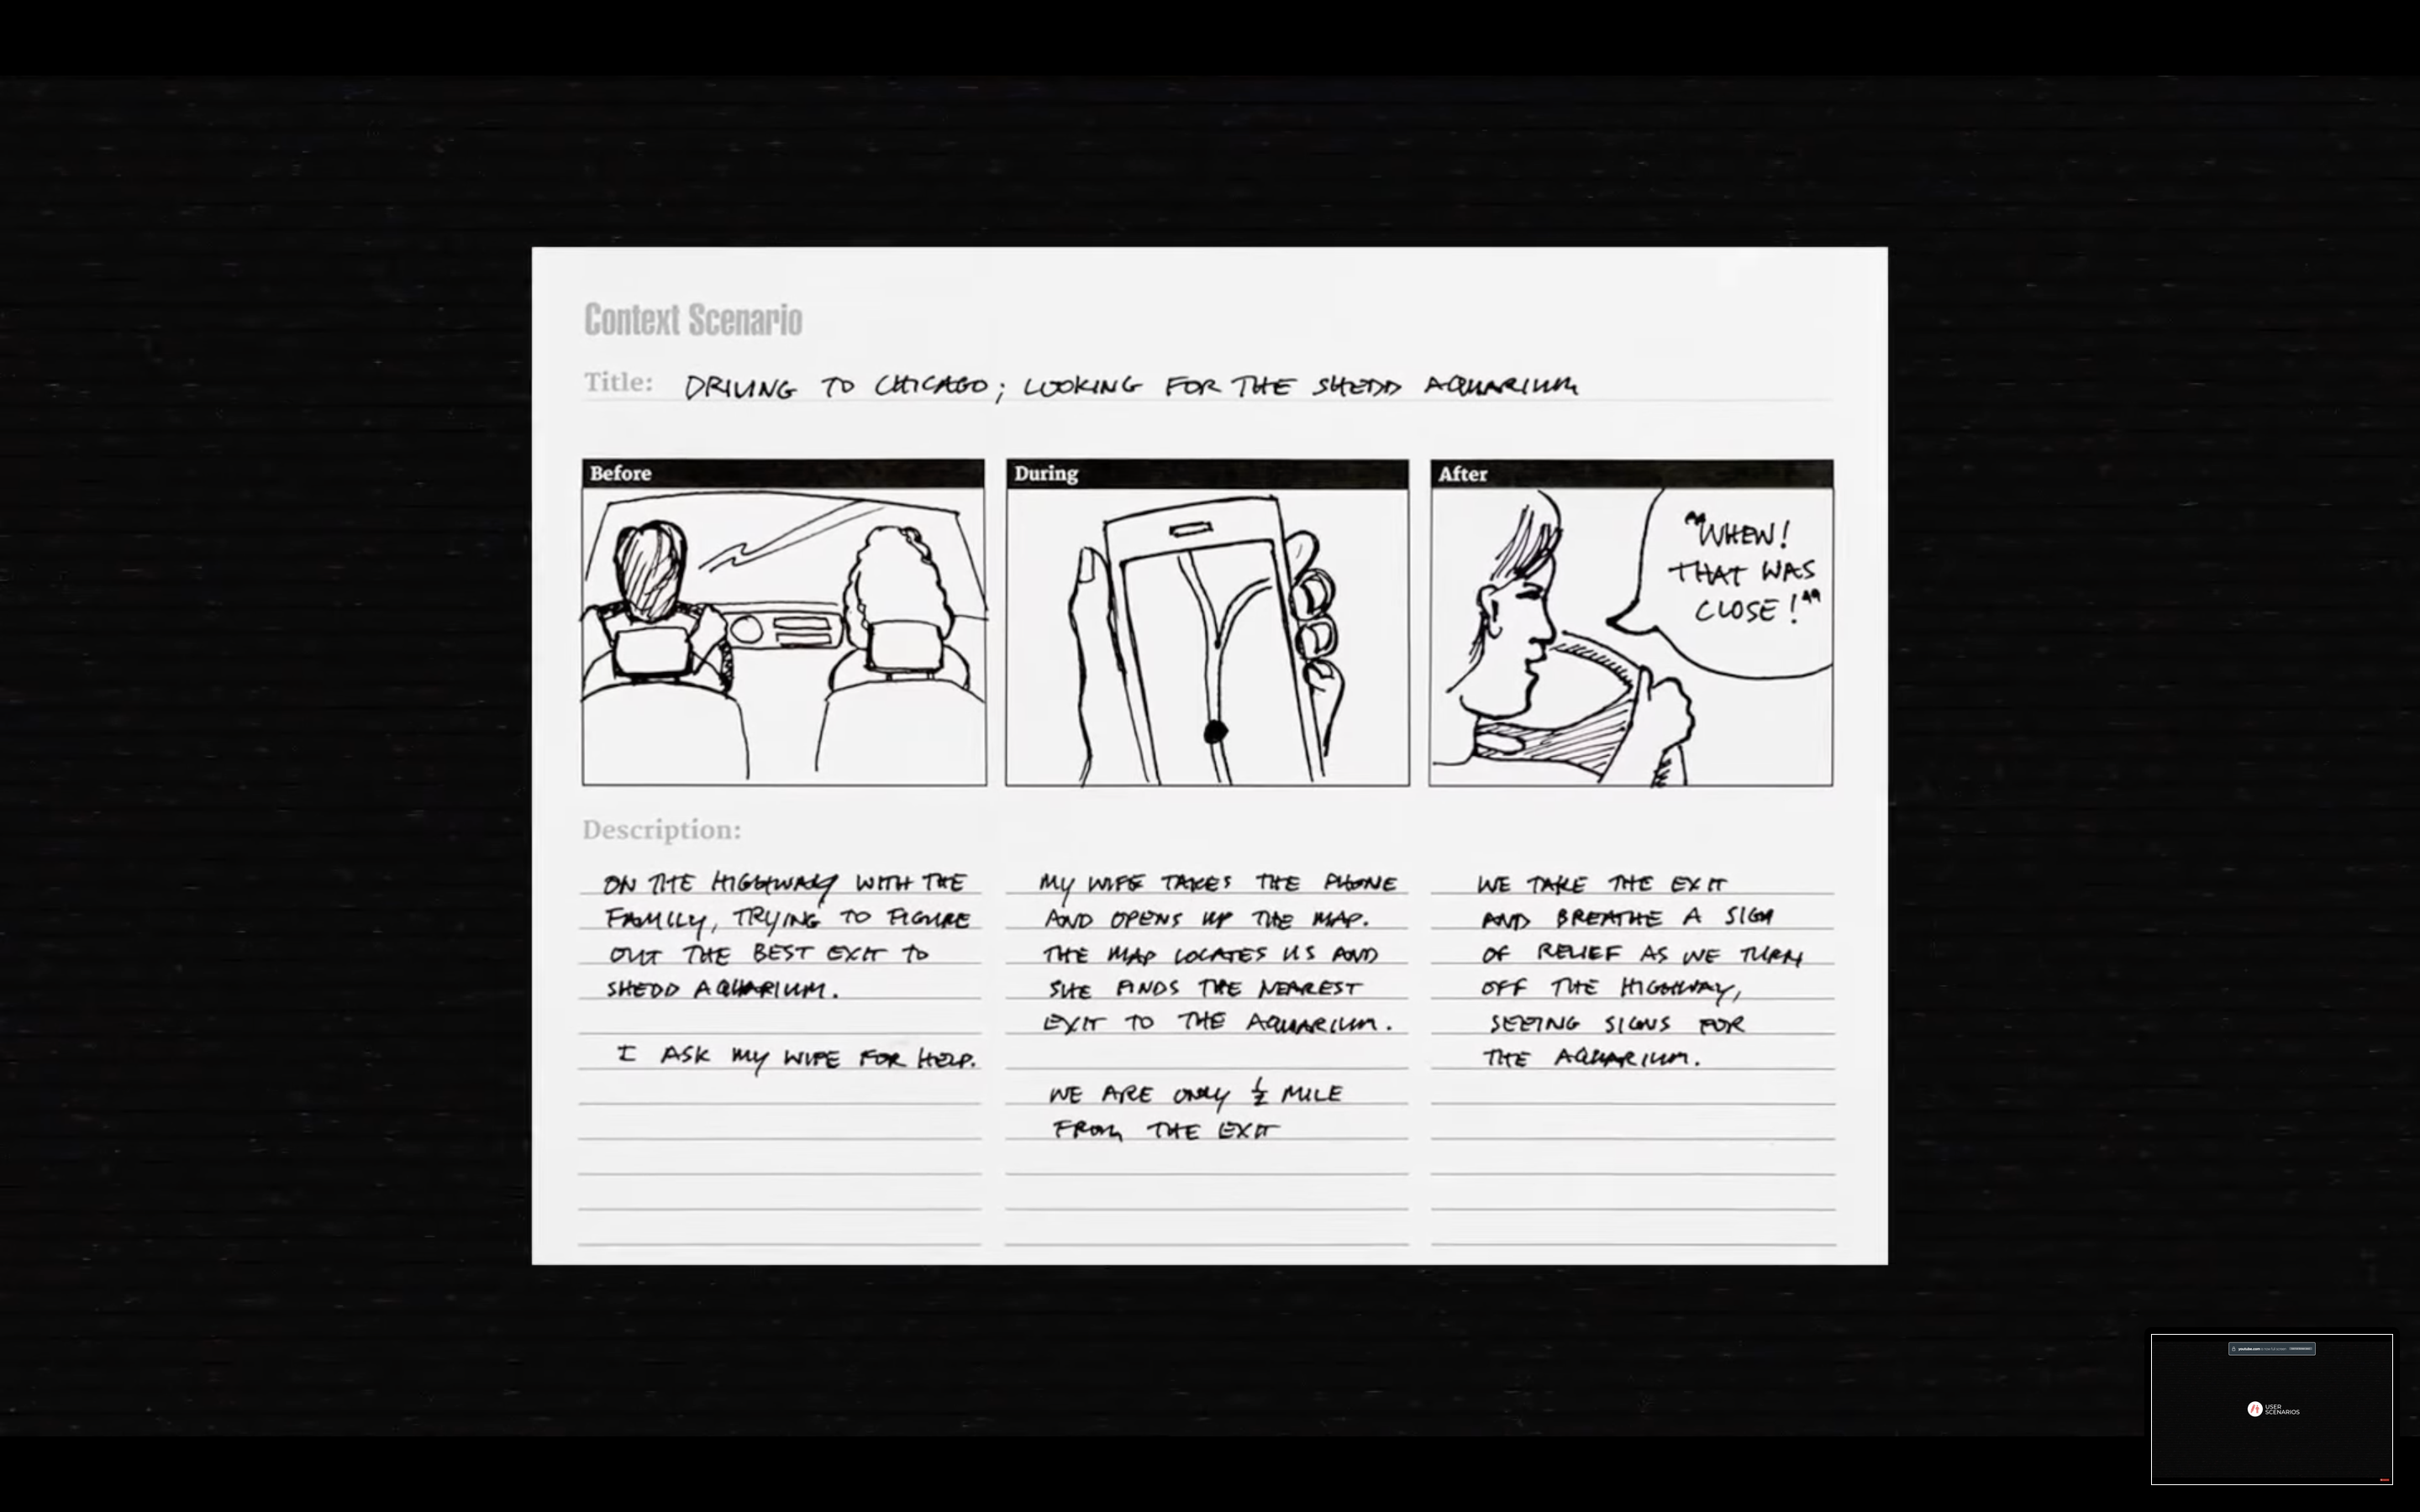 Context Scenario
Title: DRIVING TO CHICAGO; LOOKING FOR THE SHEDD AQUARIUM
Before
During
After
"WHEW!
THAT WAS
CLOSE!"
Description:
ON THE HIGHWAY WITH THE
FAMILY, TRYING TO FIGURE
OUT THE BEST EXIT TO
SHEDD AQUARIUM.
I ASK MY WIFE FOR HELP.
MY WIFE TAKES THE PHONE
AND OPENS UP THE MAP.
THE MAP LOCATES US AND
SHE FINDS THE NEAREST
EXIT TO THE AQUARIUM.
WE ARE ONLY ½ MILE
FROM THE EXIT
WE TAKE THE EXIT
AND BREATHE A SIGH
OF RELIEF AS WE TURN
OFF THE HIGHWAY,
SEEING SIGNS FOR
THE AQUARIUM.
youtube.com
USER
SCENARIOS